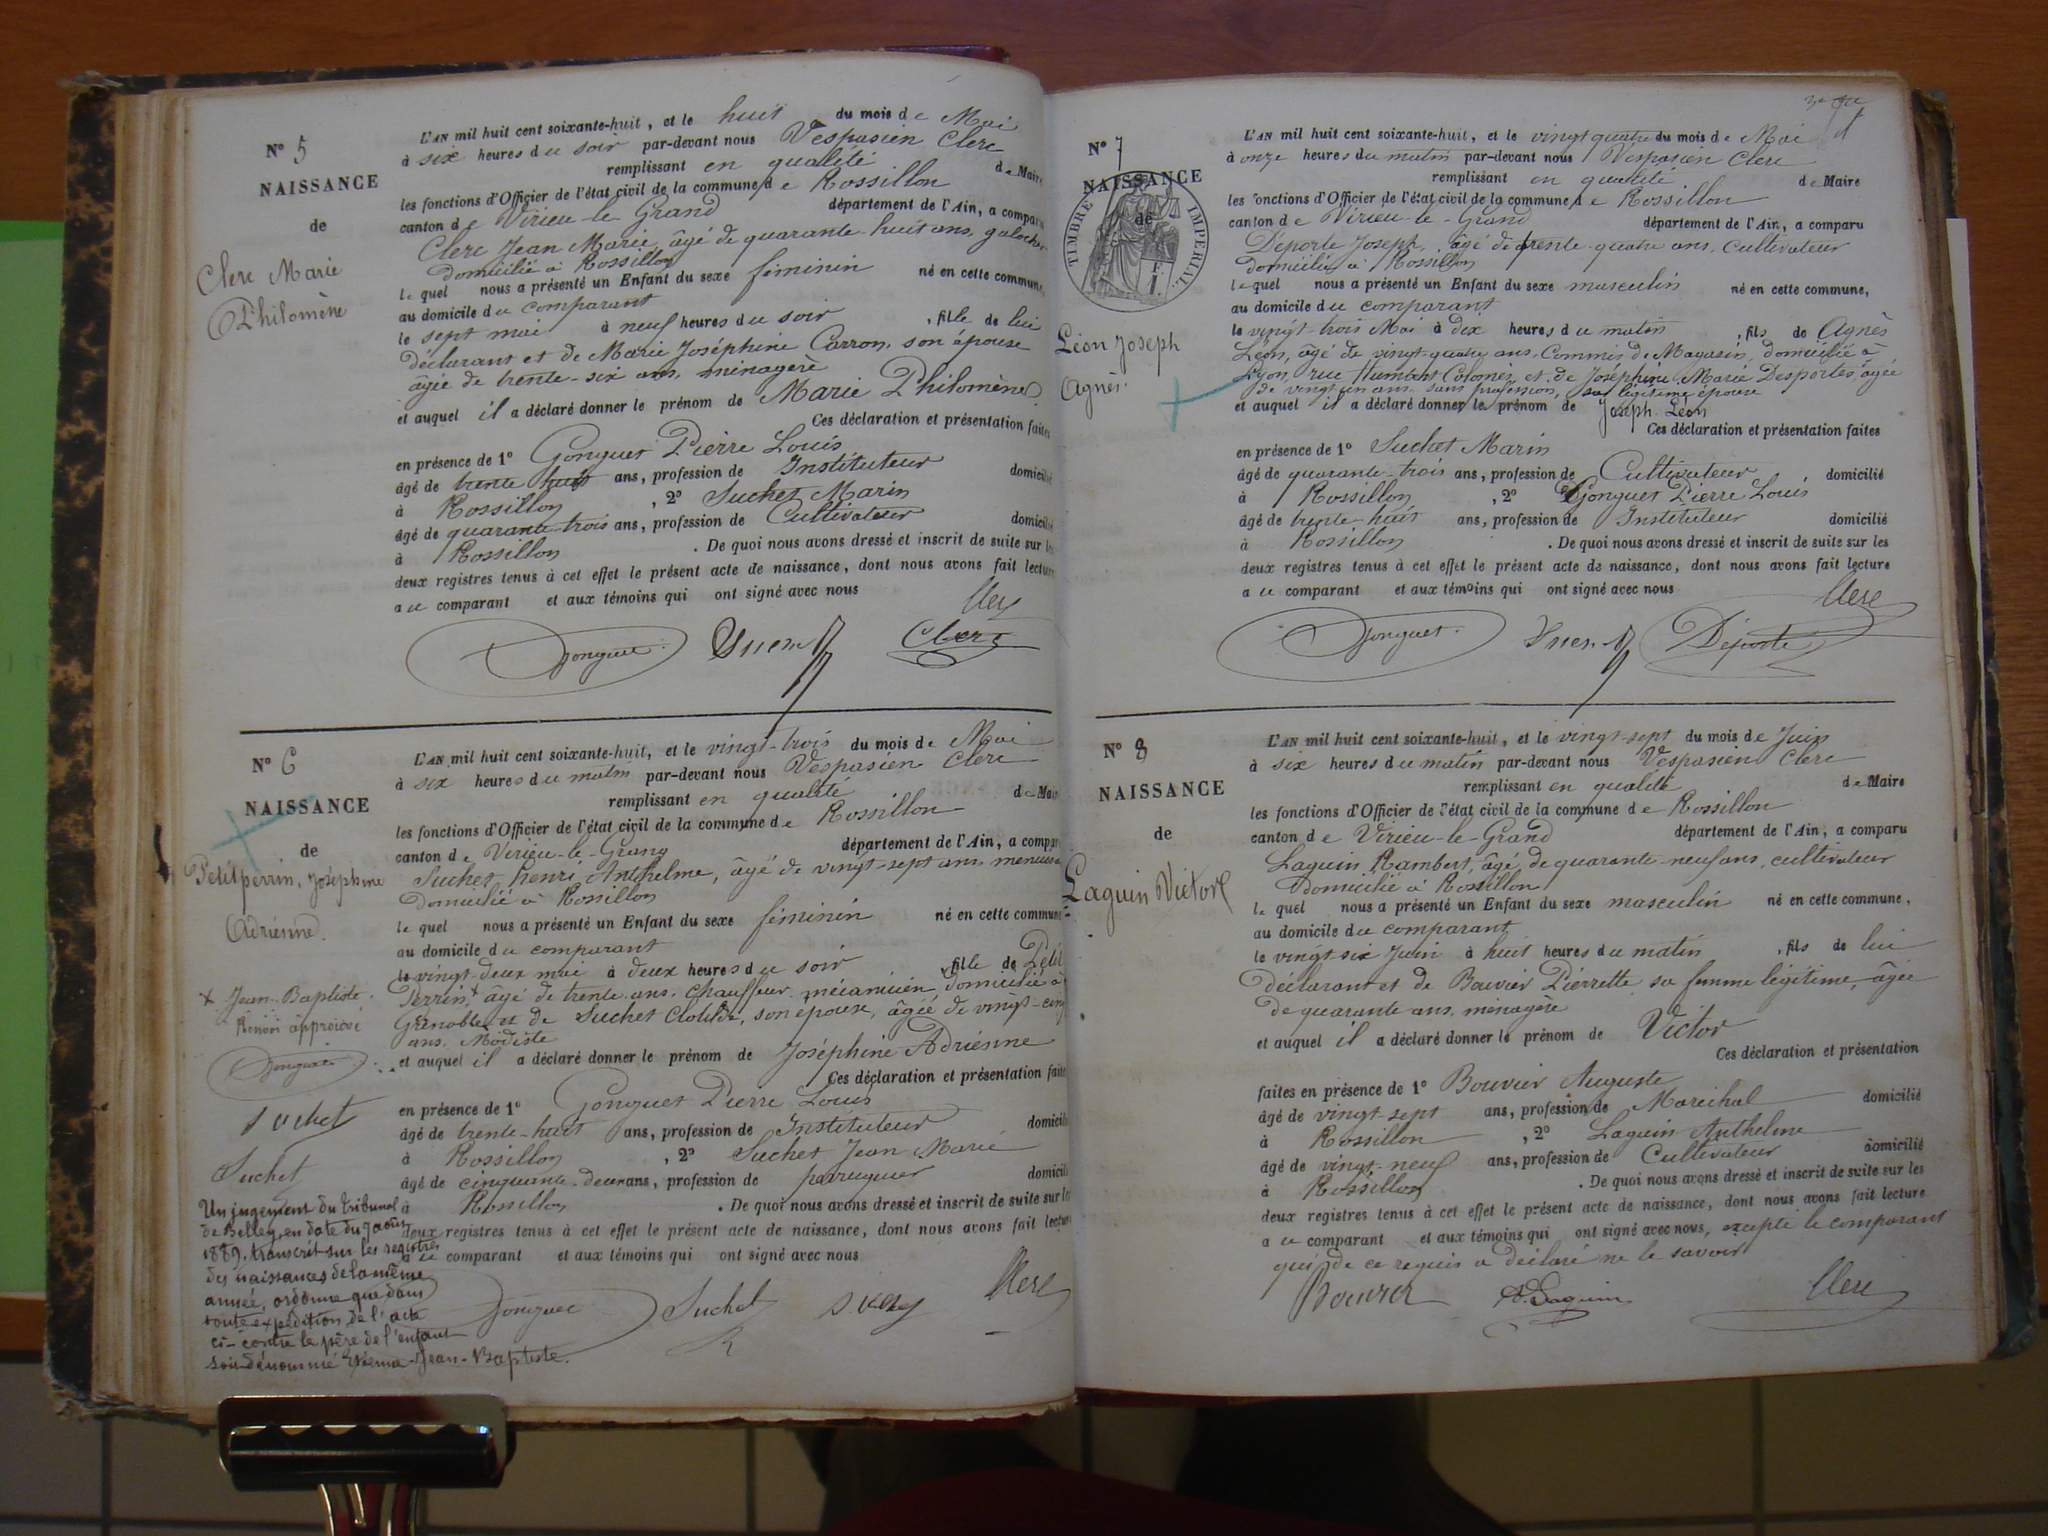 N° 5
NAISSANCE
de
Clerc Marie
Philomène
L'AN mil huit cent soixante-huit, et le huit du mois de Mai
à six heures du soir par-devant nous Vespasien Clerc
remplissant en qualité de Maire
les fonctions d'Officier de l'état civil de la commune de Rossillon
canton de Virieu-le-Grand département de l'Ain, a comparu
Clerc Jean Marie, âgé de quarante-huit ans, galocher
domicilié à Rossillon
lequel nous a présenté un Enfant du sexe féminin né en cette commune,
au domicile du comparant
le sept mai à neuf heures du soir, fille de lui
déclarant et de Marie Joséphine Carron, son épouse
âgée de trente-six ans, ménagère
et auquel il a déclaré donner le prénom de Marie Philomène
Ces déclaration et présentation faites
en présence de 1° Gonguet Pierre Louis
âgé de trente huit ans, profession de Instituteur domicilié
à Rossillon, 2° Suchet Marin
âgé de quarante-trois ans, profession de Cultivateur domicilié
à Rossillon. De quoi nous avons dressé et inscrit de suite sur les
deux registres tenus à cet effet le présent acte de naissance, dont nous avons fait lecture
au comparant et aux témoins qui ont signé avec nous
Clerc
Gonguet Clerc
N° 6
NAISSANCE
de
Petitperrin, Joséphine
Adrienne.
L'AN mil huit cent soixante-huit, et le vingt-trois du mois de Mai
à six heures du matin par-devant nous Vespasien Clerc
remplissant en qualité de Maire
les fonctions d'Officier de l'état civil de la commune de Rossillon
canton de Virieu-le-Grand département de l'Ain, a comparu
Suchet henri Anthelme, âgé de vingt-sept ans, menuisier
domicilié à Rossillon
lequel nous a présenté un Enfant du sexe féminin né en cette commune
au domicile du comparant
le vingt-deux mai à deux heures du soir, fille de Petit
Perrin,+ âgé de trente ans, chauffeur mécanicien, domicilié à
Grenoble, et de Suchet Clotilde, son épouse, âgée de vingt-cinq
ans, Modiste
et auquel il a déclaré donner le prénom de Joséphine Adrienne
Ces déclaration et présentation faites
en présence de 1° Gonguet Pierre Louis
âgé de trente-huit ans, profession de Instituteur domicilié
à Rossillon, 2° Suchet Jean Marie
âgé de cinquante-deux ans, profession de perruquier domicilié
à Rossillon. De quoi nous avons dressé et inscrit de suite sur les
deux registres tenus à cet effet le présent acte de naissance, dont nous avons fait lecture
au comparant et aux témoins qui ont signé avec nous
Gonguet Suchet Clerc
+ Jean-Baptiste.
Renvoi approuvé
Gonguet
Suchet
Suchet
Un jugement du tribunal
de Belley, en date du 9 août
1889, transcrit sur les registres
des naissances de la même
année, ordonne que dans
toute expédition de l'acte
ci-contre le père de l'enfant
soit dénommé Etienne-Jean-Baptiste.
N° 7
NAISSANCE
de
TIMBRE IMPERIAL
F.
1.
Léon Joseph
Agnès.
L'AN mil huit cent soixante-huit, et le vingt quatre du mois de Mai
à onze heures du matin par-devant nous Vespasien Clerc
remplissant en qualité de Maire
les fonctions d'Officier de l'état civil de la commune de Rossillon
canton de Virieu-le-Grand département de l'Ain, a comparu
Déporte Joseph, âgé de trente-quatre ans, Cultivateur
domicilié à Rossillon
lequel nous a présenté un Enfant du sexe masculin né en cette commune,
au domicile du comparant
le vingt-trois Mai à dix heures du matin, fils de Agnès
Léon, âgé de vingt-quatre ans, Commis de Magasin, domicilié à
Lyon, rue et de Joséphine Marie Desportes, âgée
de vingt un ans, sans profession, sa légitime épouse
et auquel il a déclaré donner le prénom de Joseph Léon
Ces déclaration et présentation faites
en présence de 1° Suchet Marin
âgé de quarante-trois ans, profession de Cultivateur domicilié
à Rossillon, 2° Gonguet Pierre Louis
âgé de trente-huit ans, profession de Instituteur domicilié
à Rossillon. De quoi nous avons dressé et inscrit de suite sur les
deux registres tenus à cet effet le présent acte de naissance, dont nous avons fait lecture
au comparant et aux témoins qui ont signé avec nous
Clerc
Gonguet Déporte
N° 8
NAISSANCE
de
Laguin Victor
L'AN mil huit cent soixante-huit, et le vingt-sept du mois de Juin
à six heures du matin par-devant nous Vespasien Clerc
remplissant en qualité de Maire
les fonctions d'Officier de l'état civil de la commune de Rossillon
canton de Virieu-le-Grand département de l'Ain, a comparu
Laguin Rambert, âgé de quarante-neuf ans, cultivateur
domicilié à Rossillon
lequel nous a présenté un Enfant du sexe masculin né en cette commune,
au domicile du comparant
le vingt-six Juin à huit heures du matin, fils de lui
déclarant et de Bouvier Pierrette, sa femme légitime, âgée
de quarante ans, ménagère
et auquel il a déclaré donner le prénom de Victor
Ces déclaration et présentation
faites en présence de 1° Bouvier Auguste
âgé de vingt-sept ans, profession de Maréchal domicilié
à Rossillon, 2° Laguin Anthelme
âgé de vingt-neuf ans, profession de Cultivateur domicilié
à Rossillon. De quoi nous avons dressé et inscrit de suite sur les
deux registres tenus à cet effet le présent acte de naissance, dont nous avons fait lecture
au comparant et aux témoins qui ont signé avec nous, excepté le comparant
qui de ce requis a déclaré ne le savoir
Bouvier A. Laguin Clerc